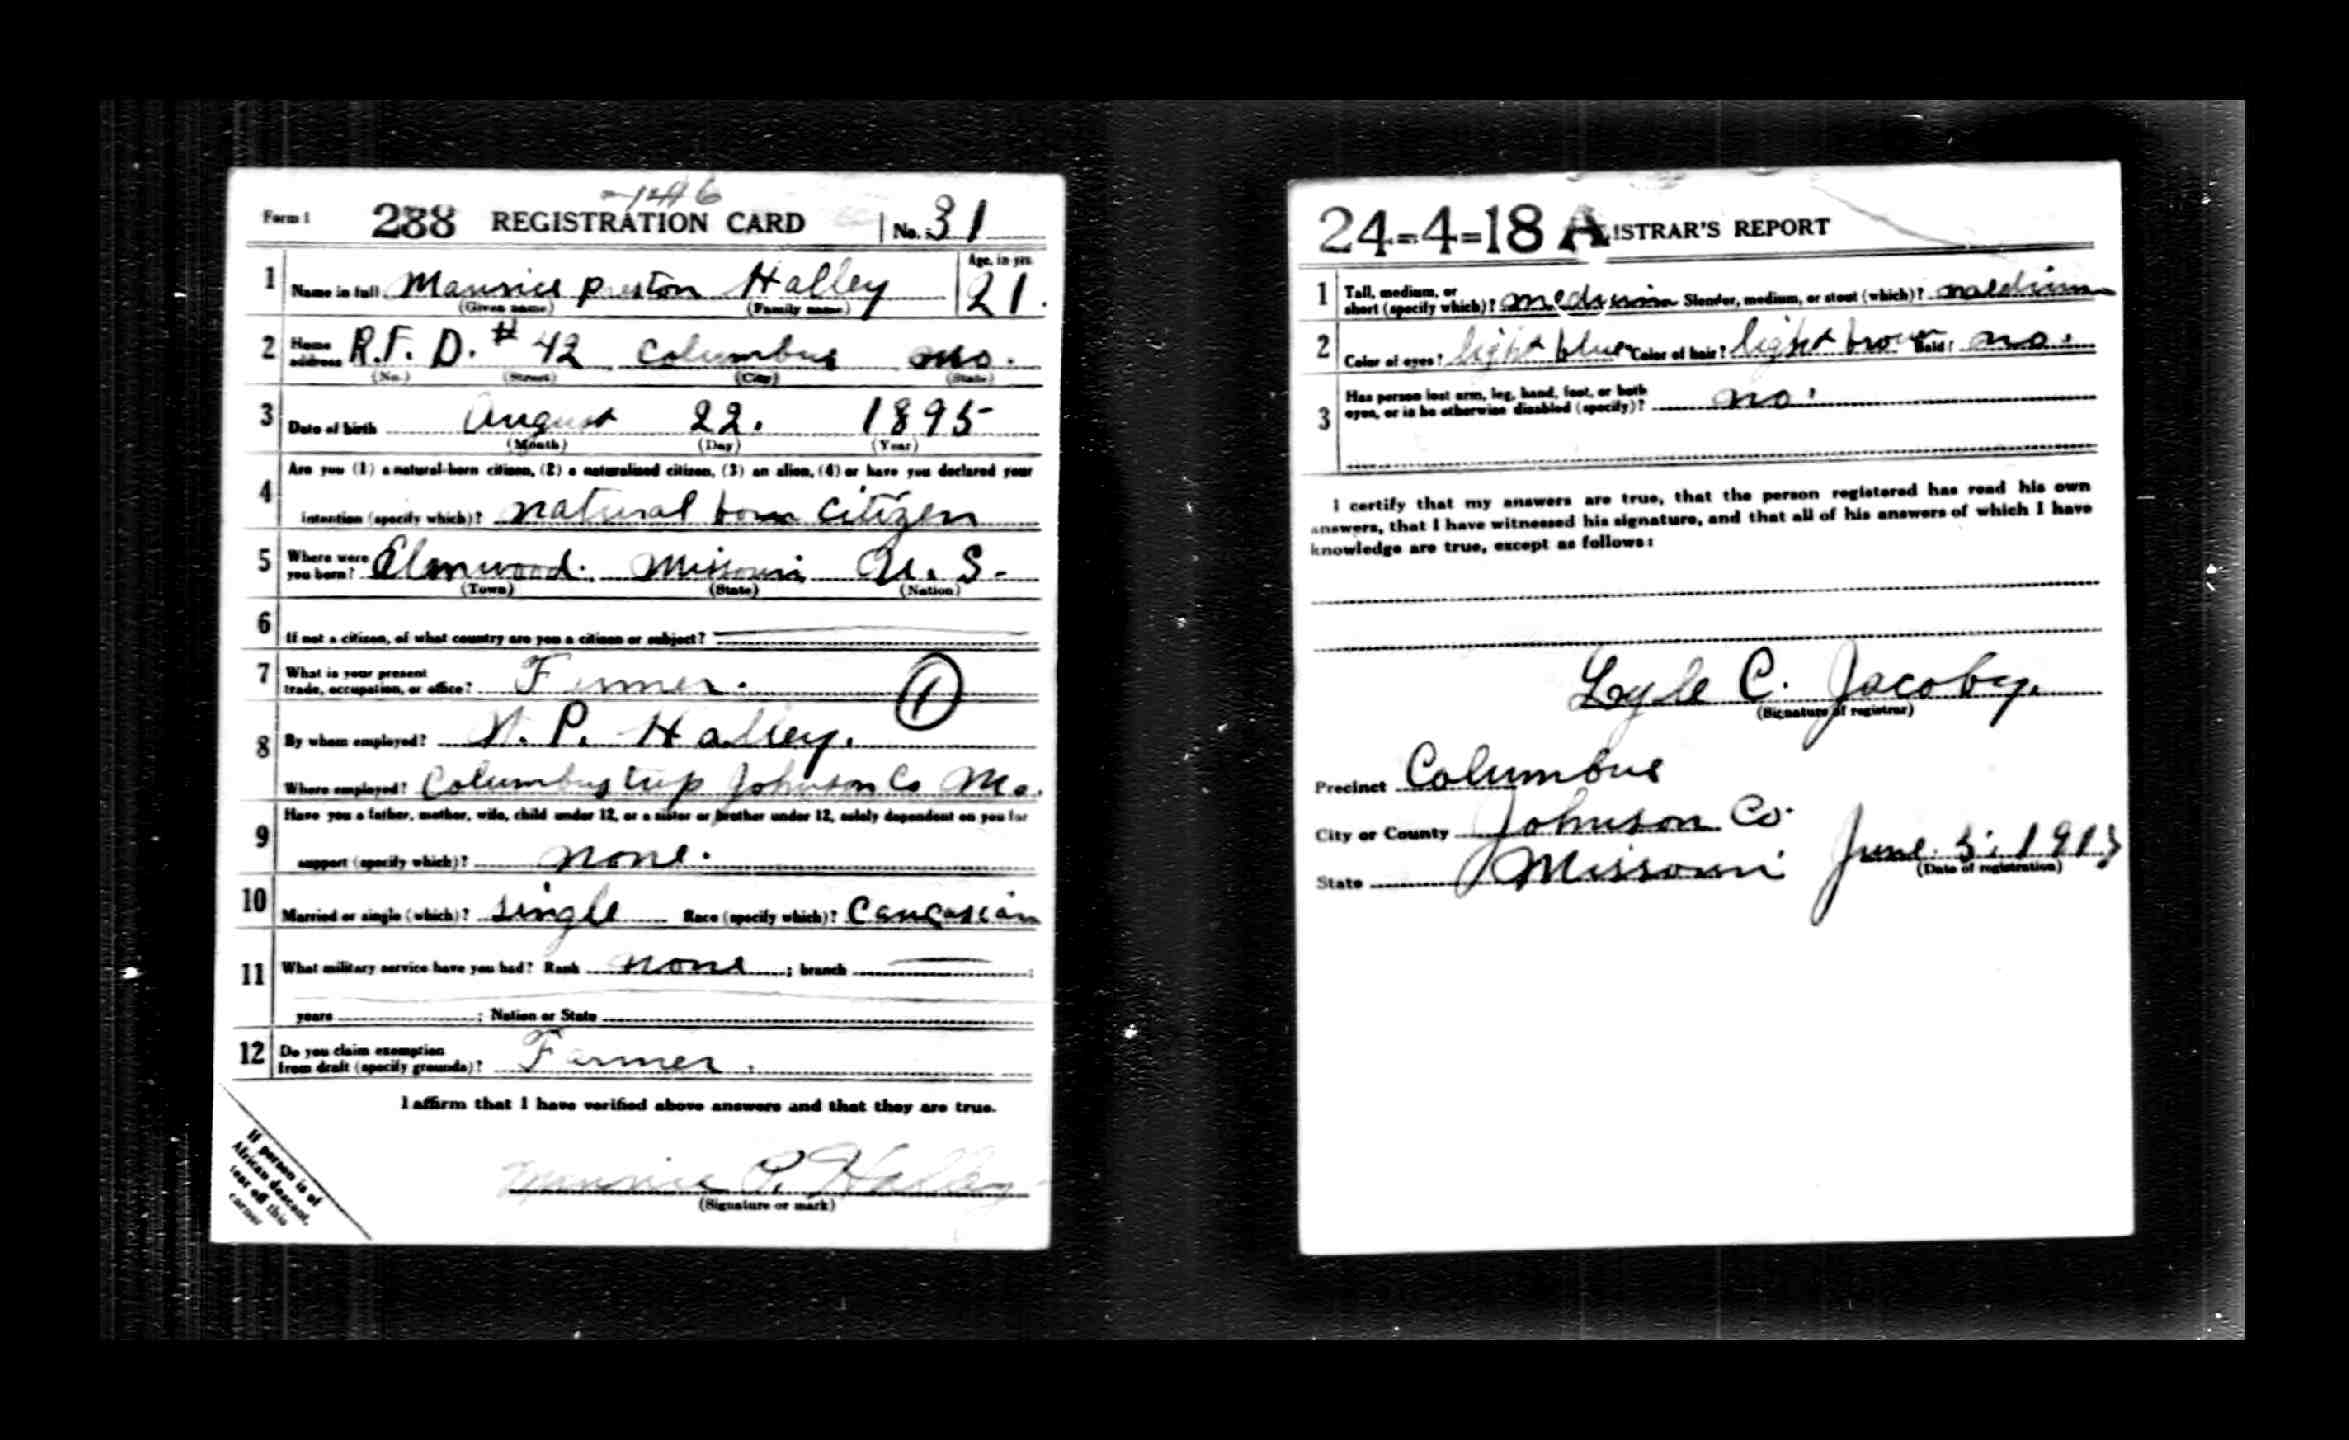 Form 1 288 REGISTRATION CARD No. 31
1 Name in full Maurice Preston Halley Age, in yrs. 21.
(Given name) (Family name)
2 Home address R.F.D. # 42 Columbus Mo.
(No.) (Street) (City) (State)
3 Date of birth August 22. 1895
(Month) (Day) (Year)
4 Are you (1) a natural-born citizen, (2) a naturalized citizen, (3) an alien, (4) or have you declared your
intention (specify which)? natural born citizen
5 Where were you born? Elmwood. Missouri U. S.
(Town) (State) (Nation)
6 If not a citizen, of what country are you a citizen or subject?
7 What is your present
trade, occupation, or office? Farmer. 1
8 By whom employed? P. Halley.
Where employed? Columbus twp Johnson Co Mo.
9 Have you a father, mother, wife, child under 12, or a sister or brother under 12, solely dependent on you for
support (specify which)? none.
10 Married or single (which)? single Race (specify which)? Caucasian
11 What military service have you had? Rank none ; branch
years ; Nation or State
12 Do you claim exemption
from draft (specify grounds)? Farmer.
I affirm that I have verified above answers and that they are true.
Maurice P. Halley
(Signature or mark)
If person is of
African descent,
tear off this
corner
24-4-18 A ISTRAR'S REPORT
1 Tall, medium, or
short (specify which)? medium Slender, medium, or stout (which)? medium
2 Color of eyes? light blue Color of hair? light brown Bald? no.
3 Has person lost arm, leg, hand, foot, or both
eyes, or is he otherwise disabled (specify)? no.
I certify that my answers are true, that the person registered has read his own
answers, that I have witnessed his signature, and that all of his answers of which I have
knowledge are true, except as follows:
Lyle C. Jacoby.
(Signature of registrar)
Precinct Columbus
City or County Johnson Co.
State Missouri June 5, 
(Date of registration)